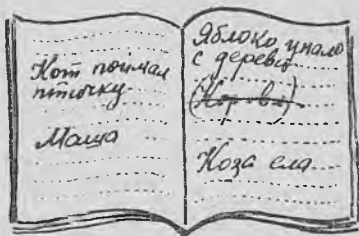 Кот поймал
птичку
Маша
Яблоко упало
с дерева
(Корова)
Коза ела